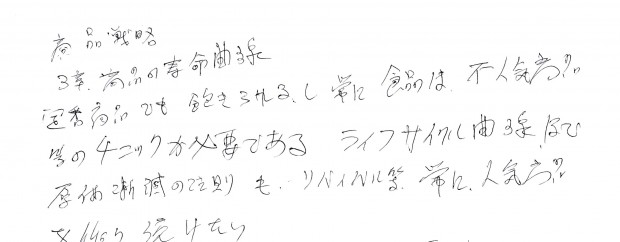 商品戦略
3章. 商品の寿命曲線
定番商品でも飽きられるし常に食品は、不人気商品
等のチェックが必要である ライフサイクル曲線及び
原価漸減の法則も、リバイバル等、常に、人気商品
を作り続けたい